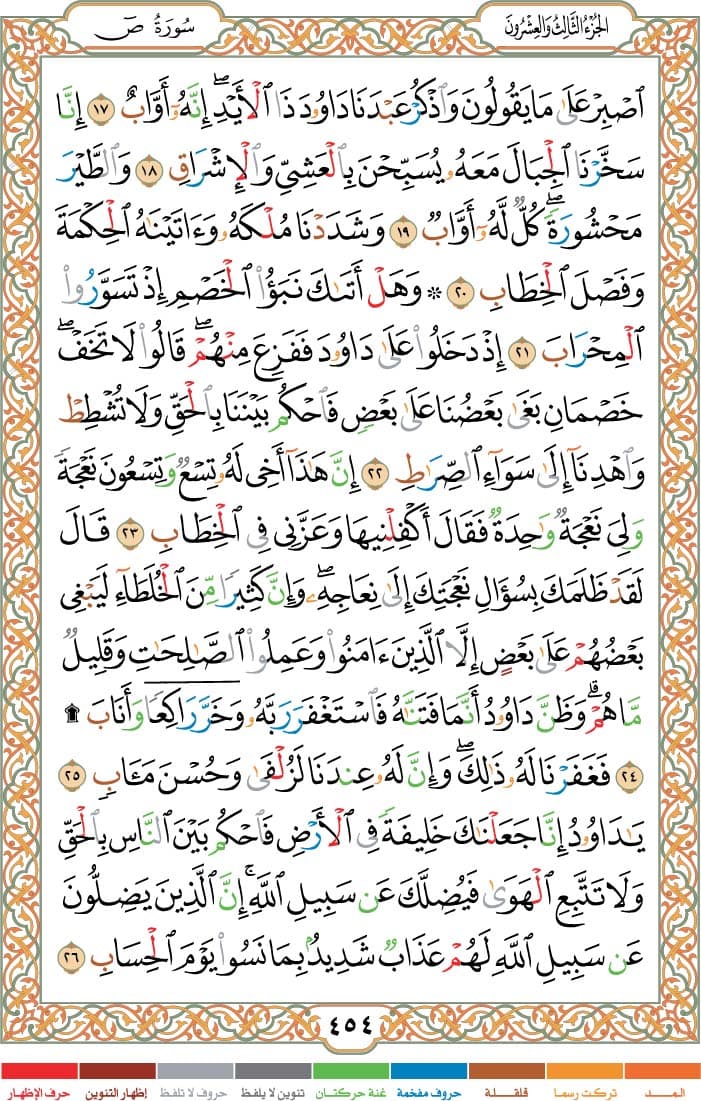 الجزء الثالث والعشرون
سورة ص
ٱصۡبِرۡ عَلَىٰ مَا يَقُولُونَ وَٱذۡكُرۡ عَبۡدَنَا دَاوُۥدَ ذَا ٱلۡأَيۡدِۖ إِنَّهُۥٓ أَوَّابٌ ١٧ إِنَّا
سَخَّرۡنَا ٱلۡجِبَالَ مَعَهُۥ يُسَبِّحۡنَ بِٱلۡعَشِيِّ وَٱلۡإِشۡرَاقِ ١٨ وَٱلطَّيۡرَ
مَحۡشُورَةٗۖ كُلّٞ لَّهُۥٓ أَوَّابٞ ١٩ وَشَدَدۡنَا مُلۡكَهُۥ وَءَاتَيۡنَٰهُ ٱلۡحِكۡمَةَ
وَفَصۡلَ ٱلۡخِطَابِ ٢٠ ۞ وَهَلۡ أَتَىٰكَ نَبَؤُاْ ٱلۡخَصۡمِ إِذۡ تَسَوَّرُواْ
ٱلۡمِحۡرَابَ ٢١ إِذۡ دَخَلُواْ عَلَىٰ دَاوُۥدَ فَفَزِعَ مِنۡهُمۡۖ قَالُواْ لَا تَخَفۡۖ
خَصۡمَانِ بَغَىٰ بَعۡضُنَا عَلَىٰ بَعۡضٖ فَٱحۡكُم بَيۡنَنَا بِٱلۡحَقِّ وَلَا تُشۡطِطۡ
وَٱهۡدِنَآ إِلَىٰ سَوَآءِ ٱلصِّرَٰطِ ٢٢ إِنَّ هَٰذَآ أَخِي لَهُۥ تِسۡعٞ وَتِسۡعُونَ نَعۡجَةٗ
وَلِيَ نَعۡجَةٞ وَٰحِدَةٞ فَقَالَ أَكۡفِلۡنِيهَا وَعَزَّنِي فِي ٱلۡخِطَابِ ٢٣ قَالَ
لَقَدۡ ظَلَمَكَ بِسُؤَالِ نَعۡجَتِكَ إِلَىٰ نِعَاجِهِۦۖ وَإِنَّ كَثِيرٗا مِّنَ ٱلۡخُلَطَآءِ لَيَبۡغِي
بَعۡضُهُمۡ عَلَىٰ بَعۡضٍ إِلَّا ٱلَّذِينَ ءَامَنُواْ وَعَمِلُواْ ٱلصَّٰلِحَٰتِ وَقَلِيلٞ
مَّا هُمۡۗ وَظَنَّ دَاوُۥدُ أَنَّمَا فَتَنَّٰهُ فَٱسۡتَغۡفَرَ رَبَّهُۥ وَخَرَّۤ رَاكِعٗاۤ وَأَنَابَ ۩
٢٤ فَغَفَرۡنَا لَهُۥ ذَٰلِكَۖ وَإِنَّ لَهُۥ عِندَنَا لَزُلۡفَىٰ وَحُسۡنَ مَـَٔابٖ ٢٥
يَٰدَاوُۥدُ إِنَّا جَعَلۡنَٰكَ خَلِيفَةٗ فِي ٱلۡأَرۡضِ فَٱحۡكُم بَيۡنَ ٱلنَّاسِ بِٱلۡحَقِّ
وَلَا تَتَّبِعِ ٱلۡهَوَىٰ فَيُضِلَّكَ عَن سَبِيلِ ٱللَّهِۚ إِنَّ ٱلَّذِينَ يَضِلُّونَ
عَن سَبِيلِ ٱللَّهِ لَهُمۡ عَذَابٞ شَدِيدُۢ بِمَا نَسُواْ يَوۡمَ ٱلۡحِسَابِ ٢٦
٤٥٤
المــد تركت رسما قلقلة حروف مفخمة غنة حركتان تنوين لا يلفظ حروف لا تلفظ إظهار التنوين حرف الإظهار